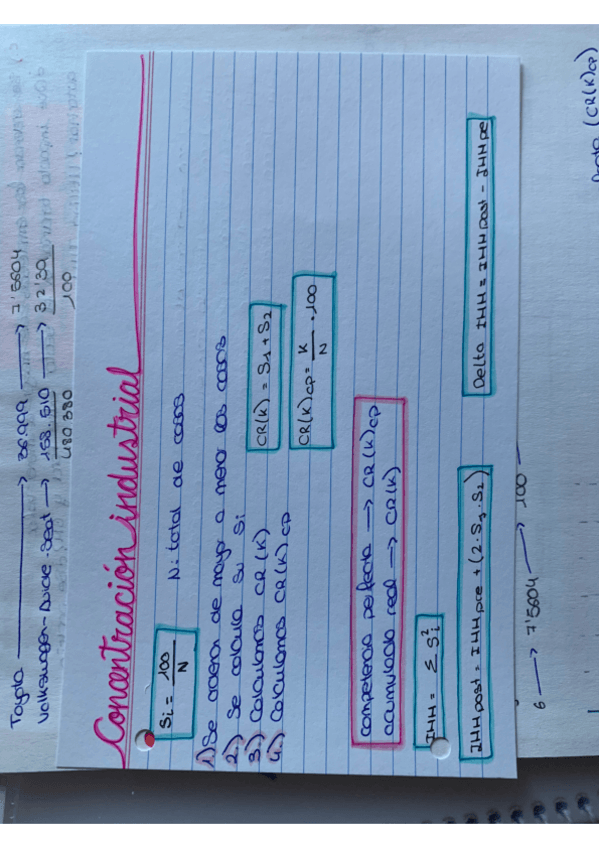 Toyota → 36.999 → 7'5604
Volkswagen-Audi-Seat → 158.510 → 32'39
480 380 100
Concentración industrial
Si = 100 / N N: total de casos
1) Se ordenan de mayor a menor los casos
2) Se calcula su Si
3) Calculamos CR(K) CR(K) = S1 + S2
4) Calculamos CR(K)CP CR(K)CP = K / N · 100
competencia perfecta → CR(K)CP
acumulada real → CR(K)
IHH = Σ Si²
IHH post = IHH pre + (2 · S1 · S2) Delta IHH = IHH post - IHH pre
6 → 7'5604 → 100
(CR(K)CP)